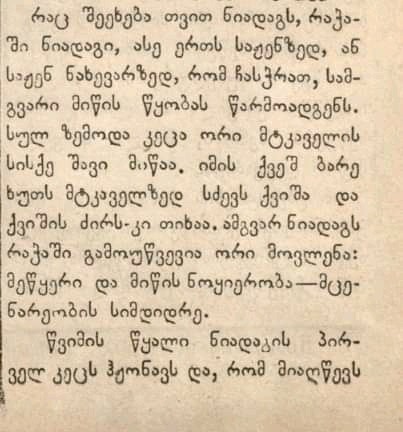 რაც შეეხება თვით ნიადაგს, რაჭა-
ში ნიადაგი, ასე ერთს საჟენზედ, ან
საჟენ ნახევარზედ, რომ ჩასჭრათ, სამ-
გვარი მიწის წყობას წარმოადგენს.
სულ ზემოდა კეცა ორი მტკაველის
სისქე შავი მიწაა. იმის ქვეშ ბარე
ხუთს მტკაველზედ სძევს ქვიშა და
ქვიშის ძირს-კი თიხაა. ამგვარ ნიადაგს
რაჭაში გამოუწვევია ორი მოვლენა:
მეწყერი და მიწის ნოყიერობა—მცე-
ნარეობის სიმდიდრე.
წვიმის წყალი ნიადაგის პირ-
ველ კეცს ჰჟონავს და, რომ მიაღწევს